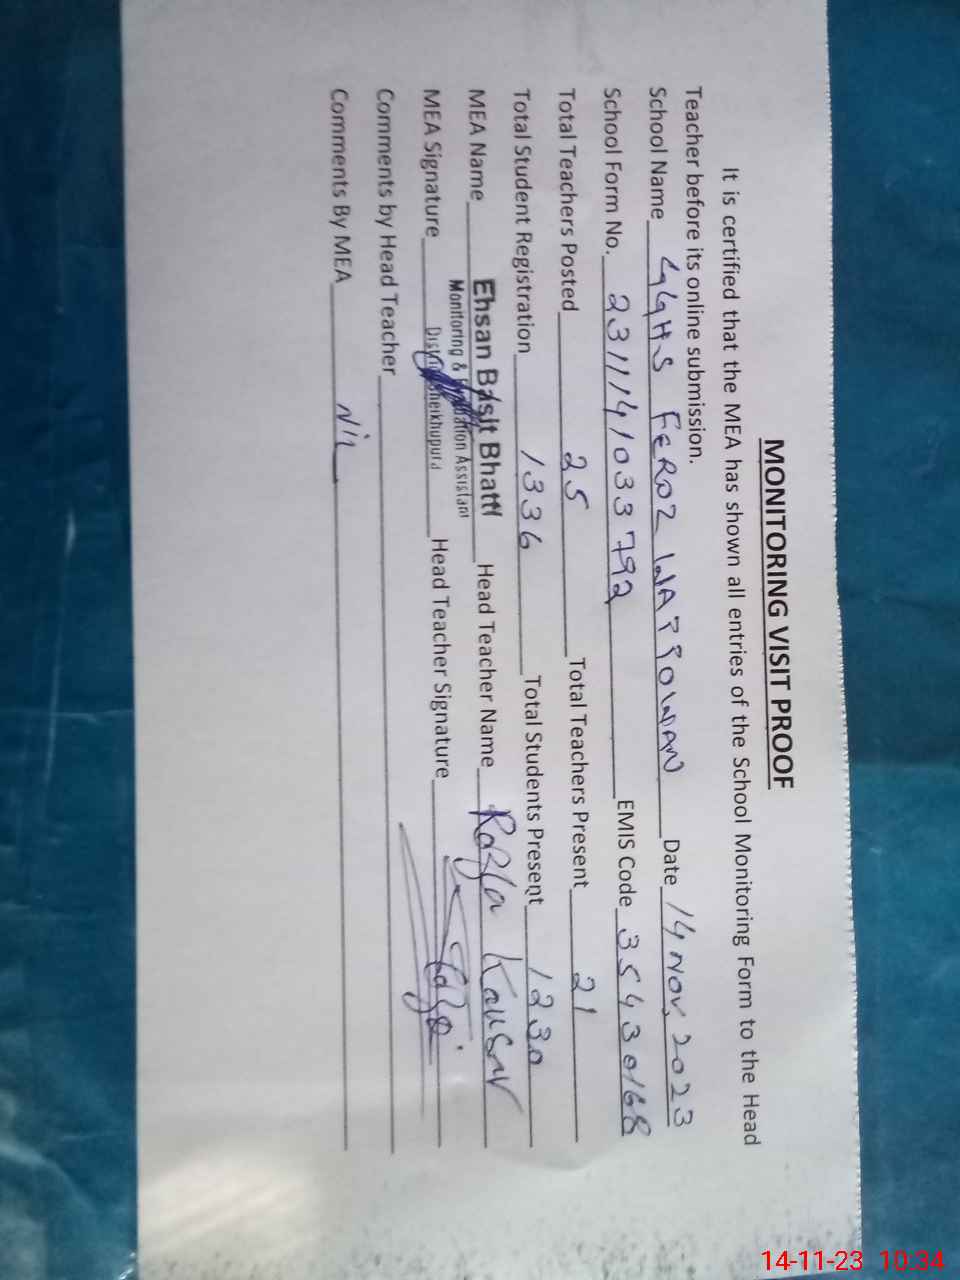 MONITORING VISIT PROOF
It is certified that the MEA has shown all entries of the School Monitoring Form to the Head
Teacher before its online submission.
School Name GGHS FEROZ WATTOWAN Date 14 Nov, 2023
School Form No. 2311141033792 EMIS Code 35430168
Total Teachers Posted 25 Total Teachers Present 21
Total Student Registration 1336 Total Students Present 1230
MEA Name Ehsan Basit Bhatti Head Teacher Name Razia Kausar
Monitoring & Assistant
MEA Signature Sheikhupura Head Teacher Signature
Comments by Head Teacher
Comments By MEA Nil
14-11-23 10:34